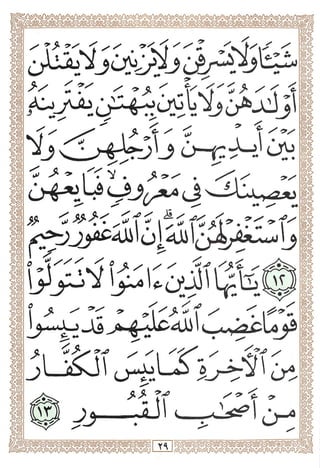 شَيْـًٔا وَلَا يَسْرِقْنَ وَلَا يَزْنِينَ وَلَا يَقْتُلْنَ
أَوْلَٰدَهُنَّ وَلَا يَأْتِينَ بِبُهْتَٰنٍ يَفْتَرِينَهُۥ
بَيْنَ أَيْدِيهِنَّ وَأَرْجُلِهِنَّ وَلَا
يَعْصِينَكَ فِى مَعْرُوفٍ ۙ فَبَايِعْهُنَّ
وَٱسْتَغْفِرْ لَهُنَّ ٱللَّهَ ۖ إِنَّ ٱللَّهَ غَفُورٌ رَّحِيمٌ
١٢ يَٰٓأَيُّهَا ٱلَّذِينَ ءَامَنُوا۟ لَا تَتَوَلَّوْا۟
قَوْمًا غَضِبَ ٱللَّهُ عَلَيْهِمْ قَدْ يَئِسُوا۟
مِنَ ٱلْءَاخِرَةِ كَمَا يَئِسَ ٱلْكُفَّارُ
مِنْ أَصْحَٰبِ ٱلْقُبُورِ ١٣
٢٩